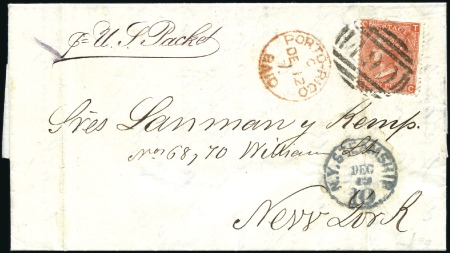 p. U. S. Packet
PORTO-RICO
DE 12
PAID
Sres Lanman y Kemp.
Nos 68, 70 William St.
N.Y. STEAMSHIP
DEC
10
New York